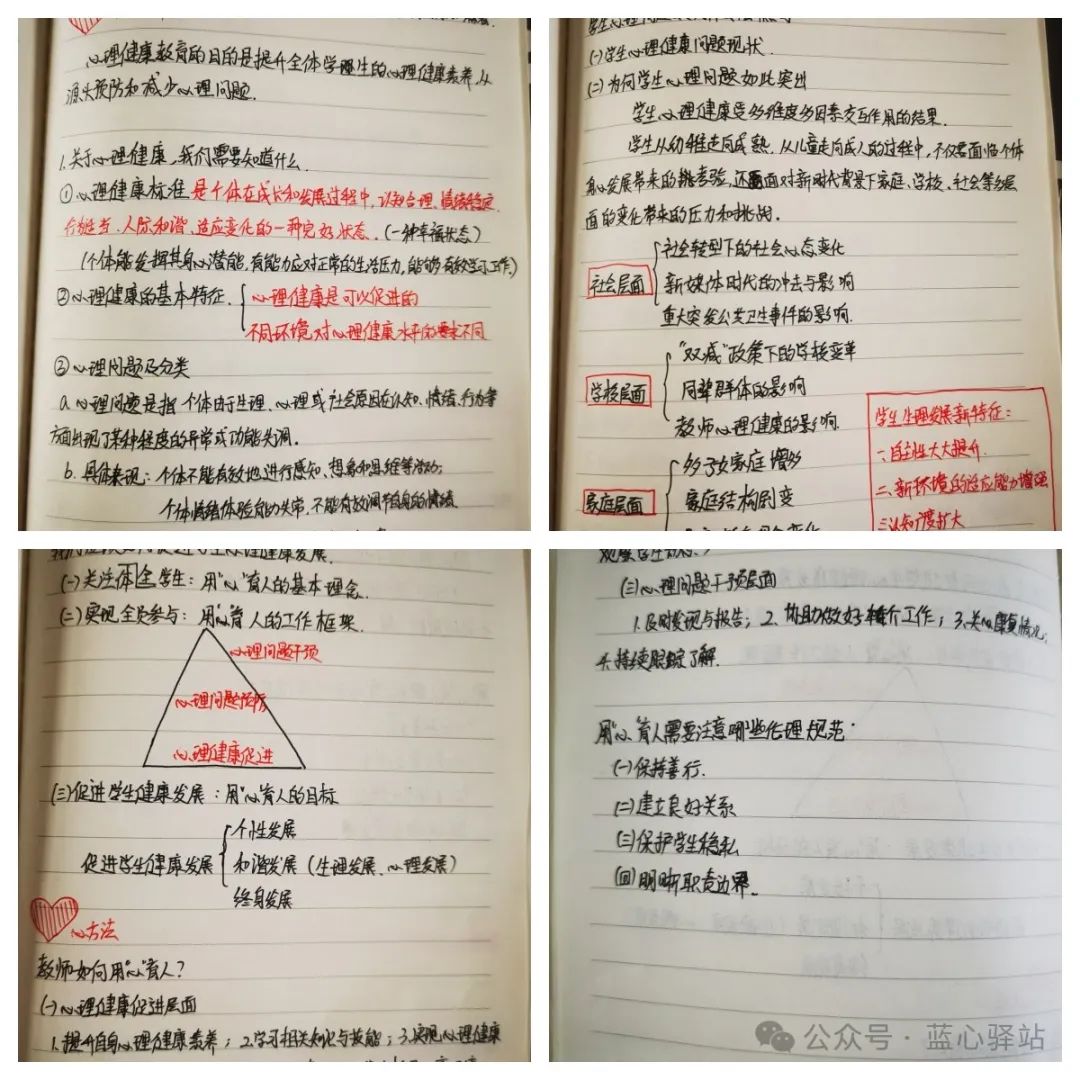 心理健康教育的目的是提升全体学理生的心理健康素养,从
源头预防和减少心理问题.
1.关于心理健康,我们需要知道什么
①心理健康标准 是个体在成长和发展过程中,认知合理、情绪稳定、
行为适当、人际和谐、适应变化的一种完好状态.(一种幸福状态)
(个体能发挥其身心潜能,有能力应对正常的生活压力,能够有效学习工作.)
②心理健康的基本特征. 心理健康是可以促进的
不同环境对心理健康水平的要求不同
③心理问题及分类
a.心理问题是指个体由于生理、心理或社会原因在认知、情绪、行为等
方面出现了某种程度的异常或功能失调.
b.具体表现:个体不能有效地进行感知、想象和思维等活动;
个体情绪体验有的失常,不能有效调节自身的情绪
(一)学生心理健康问题现状.
(二)为何学生心理问题如此突出
学生心理健康受多维度多因素交互作用的结果.
学生从幼稚走向成熟,从儿童走向成人的过程中,不仅要面临个体
身心发展带来的考验,还面对新时代背景下家庭、学校、社会等多层
面的变化带来的压力和挑战.
社会层面
社会转型下的社会心态变化
新媒体时代的冲击与影响
重大突发公共卫生事件的影响.
学校层面
"双减"政策下的学校变革
同辈群体的影响
教师心理健康的影响.
家庭层面
多子女家庭增多
家庭结构剧变
学生生理发展新特征:
一、自主性大大提升.
二、新环境的适应能力增强
三、认知渡扩大
(一)关注体全学生:用"心"育人的基本理念.
(二)实现全员参与:用"心"育人的工作框架.
心理问题干预
心理问题预防
心理健康促进
(三)促进学生健康发展:用"心"育人的目标
促进学生健康发展
个性发展
和谐发展(生理发展、心理发展)
终身发展
心方法
教师如何用"心"育人?
(一)心理健康促进层面
1.提升自身心理健康素养;2.学习相关知识与技能;3.实现心理健康
(三)心理问题干预层面
1.及时发现与报告;2、协助做好转介工作;3.关心康复情况;
4.持续跟踪了解.
用"心"育人需要注意哪些伦理规范:
(一)保持善行.
(二)建立良好关系
(三)保护学生隐私
(四)明晰职责边界.
公众号·蓝心驿站